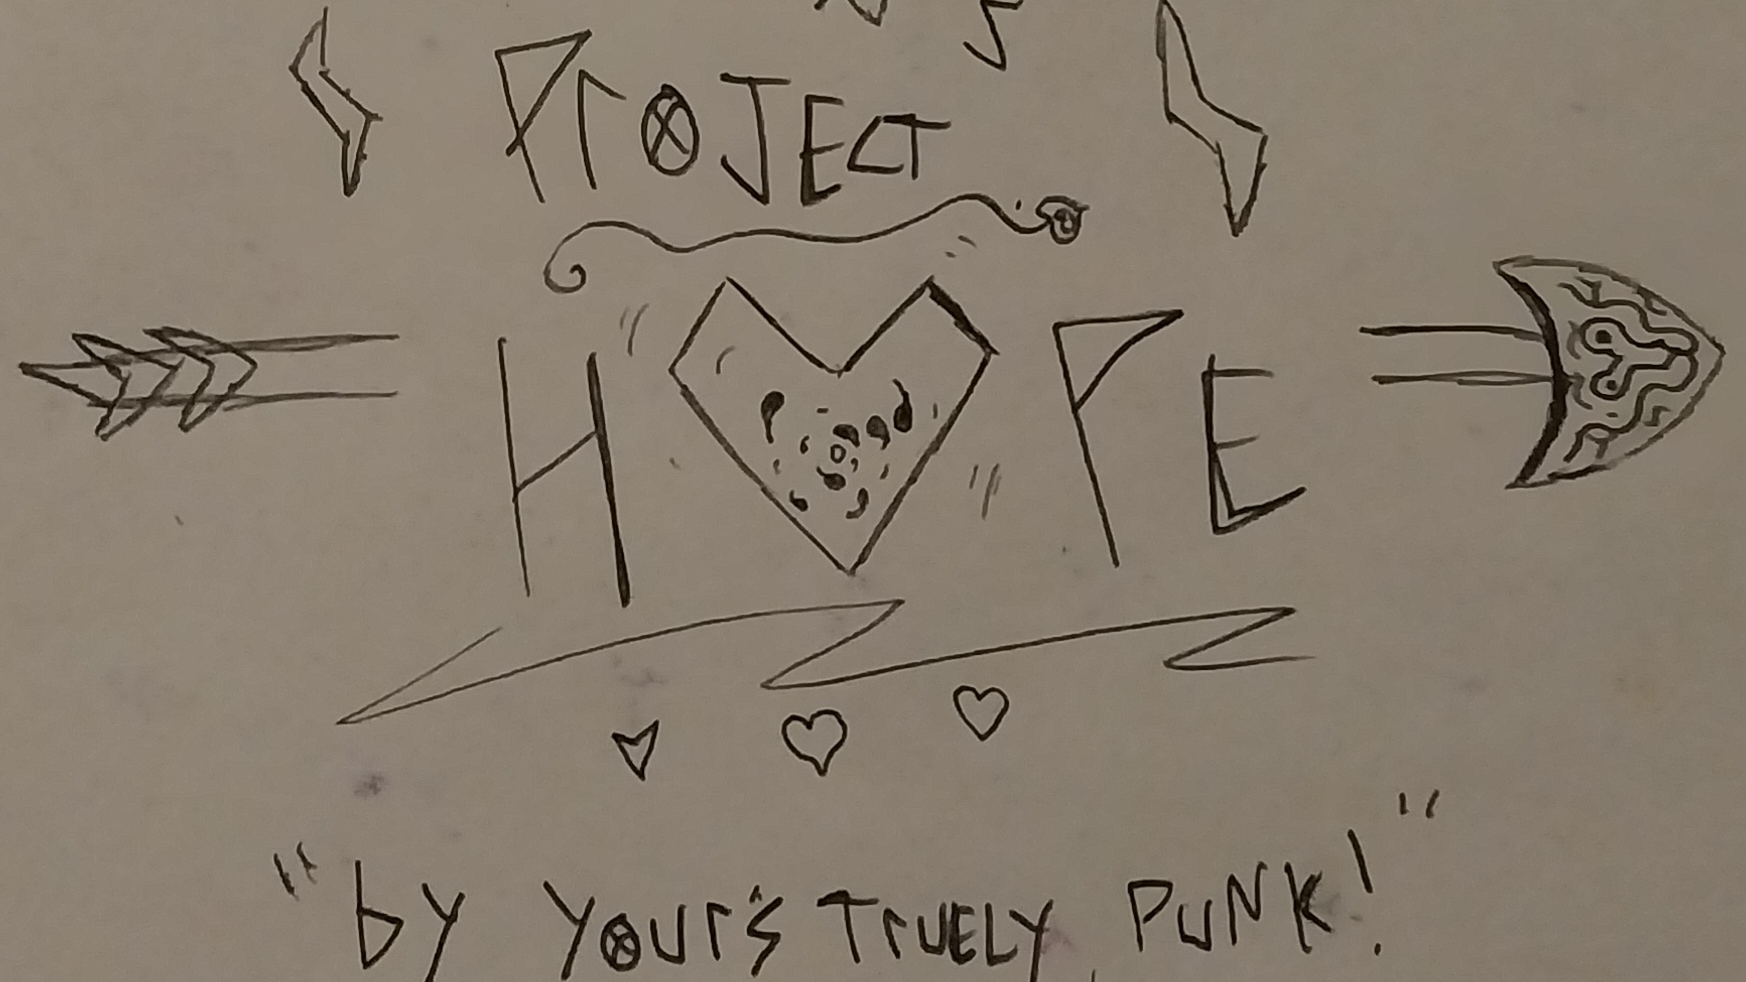 PrOJECT
H♥PE
"by YOUr'S TrUELY, PUNK!"